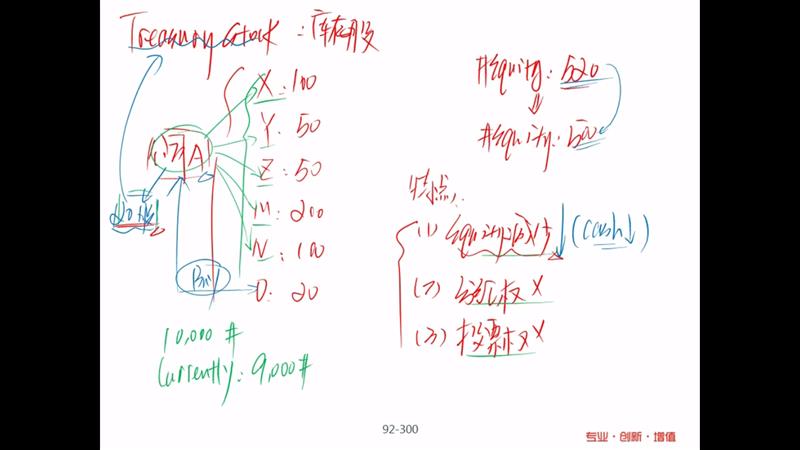 Treasury Stock : 库存股
X : 100
Y : 50
公司A
Z : 50
M : 200
N : 100
O : 20
10,000 #
Currently : 9,000 #
#Equity : 520
#Equity : 500
特点:
(1) Equity减少↓ (cash↓)
(2) 分红权 ×
(3) 投票权 ×
92-300
专业·创新·增值